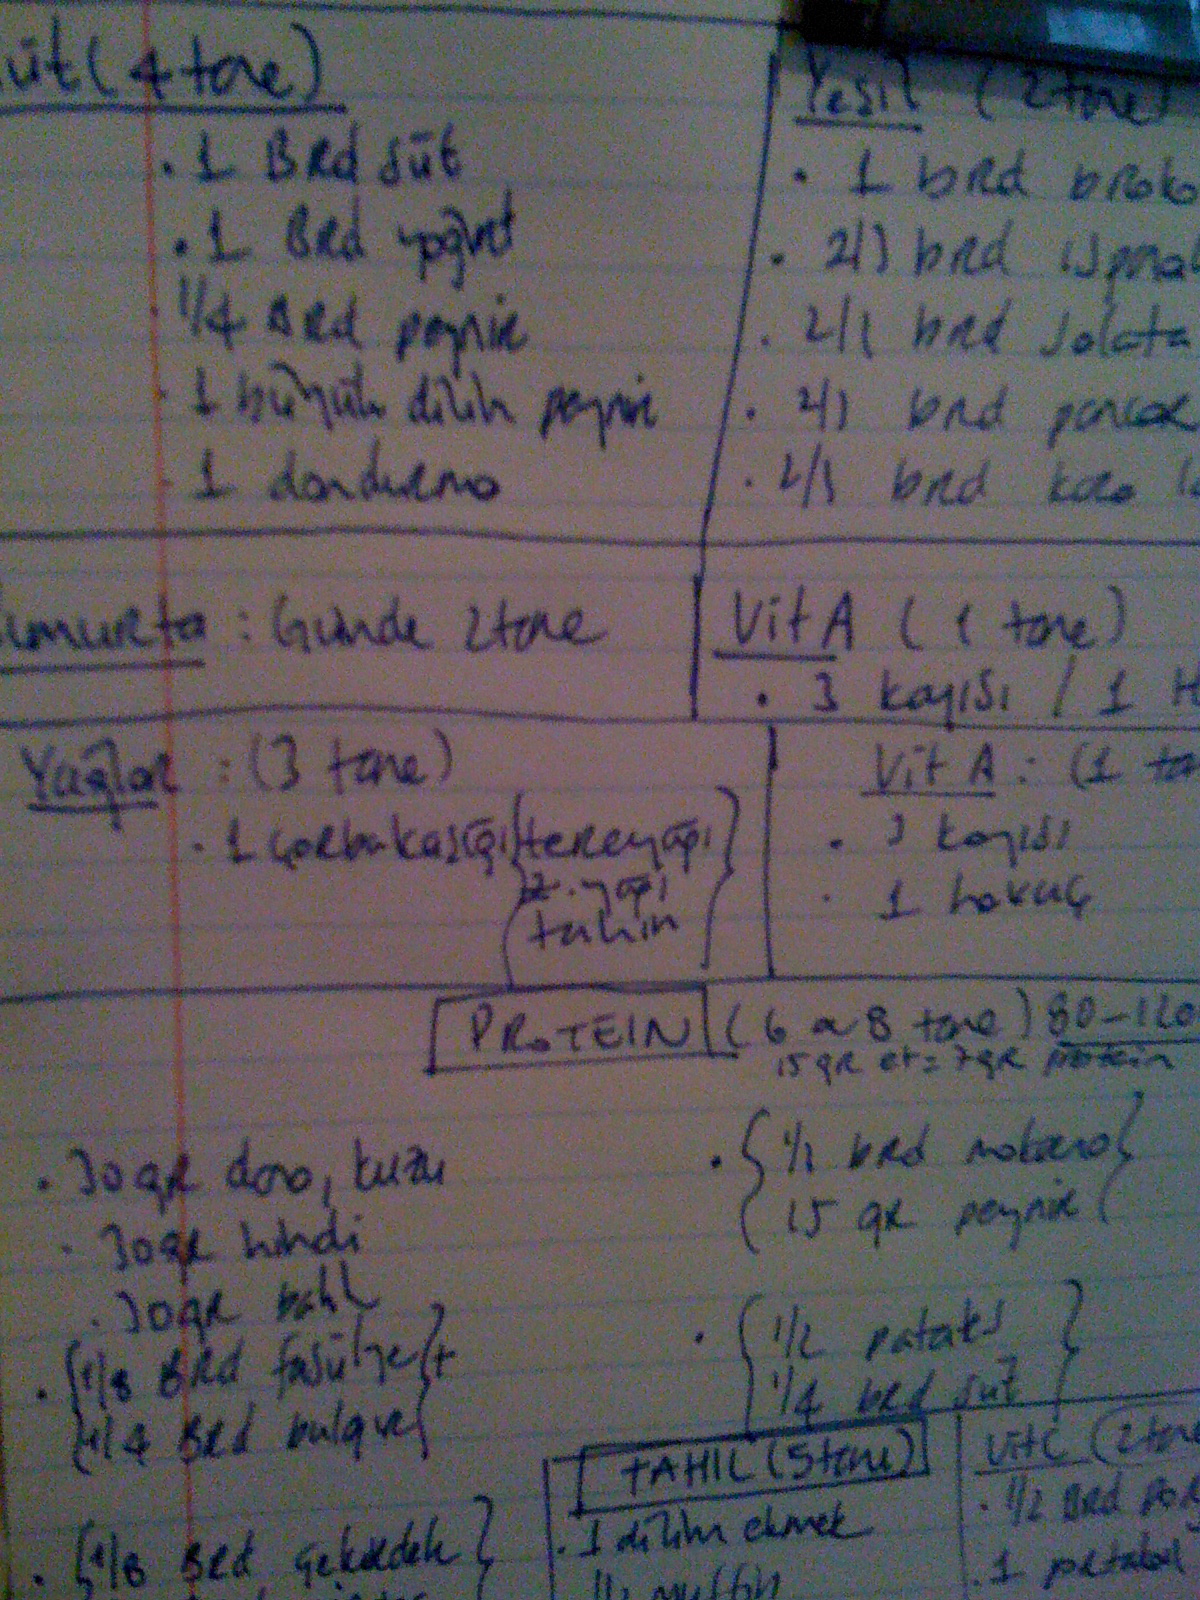 üt (4 tane)
. 1 BRd süt
. 1 BRd yoğurt
1/4 BRd peynir
. 1 büyük dilim peynir
. 1 dondurma
Yeşil (2 tane)
. 1 bRd broko
. 2/3 bRd ıspana
. 2/3 bRd salata
. 2/3 bRd
. 2/3 bRd kara la
umurta : Günde 2 tane
Vit A (1 tane)
. 3 kayısı / 1 H
Yağlar : (3 tane)
. 1 çorba kaşığı { tereyağı
z. yağı
tahin }
Vit A : (1 ta
. 3 kayısı
. 1 havuç
PROTEIN (6 ~ 8 tane) 80-120
15 gR et = 7 gR protein
. 30 gR dana, kuzu
. 30 gR hindi
. 30 gR balık
. { 1/8 BRd fasülye } +
{ 1/4 BRd bulgur }
. { 1/8 BRd çekirdek }
. { bRd makarna }
{ 15 gR peynir }
. { 1/2 patates }
{ 1/4 bRd süt }
TAHIL (5 tane)
. 1 dilim ekmek
1/2 muffin
Vit C (2 tane
. 1/2 BRd por
. 1 portakal